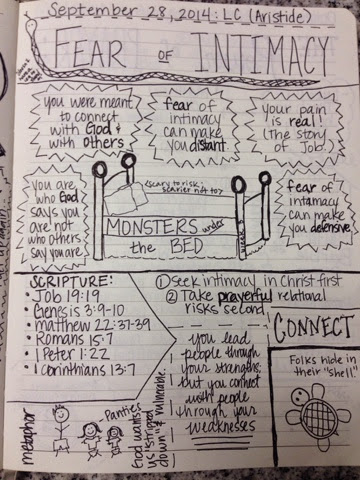 September 28, 2014: LC (Aristide)
FEAR OF INTIMACY
you were meant
to connect
with God &
with others
fear of
intimacy
can make
you distant.
your pain
is real!
(The story
of Job.)
you are
who God
says you
are not
who others
say you are.
scary to risk,
scarier not to?
MONSTERS under
the BED
week 3
fear of
intamacy
can make
you defensive
SCRIPTURE:
• Job 19:19
• Genesis 3:9-10
• matthew 22:37-39
• Romans 15:7
• 1 Peter 1:22
• 1 corinthians 13:7
① seek intimacy in Christ first
② Take prayerful relational
risks second
CONNECT
you lead
people through
your strengths,
but you connect
with people
through your
weaknesses
Folks hide in
their "shell."
metaphor
Pants
God wants
us "stripped
down" & vulnerable.